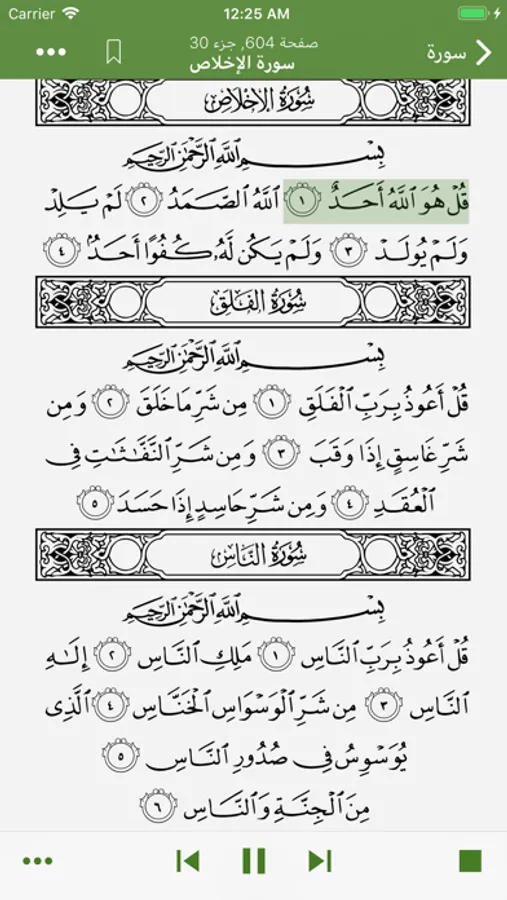 Carrier 12:25 AM
سورة
صفحة 604, جزء 30
سورة الإخلاص
سُورَةُ الإِخْلَاصِ
بِسْمِ ٱللَّهِ ٱلرَّحْمَٰنِ ٱلرَّحِيمِ
قُلْ هُوَ ٱللَّهُ أَحَدٌ ١ ٱللَّهُ ٱلصَّمَدُ ٢ لَمْ يَلِدْ
وَلَمْ يُولَدْ ٣ وَلَمْ يَكُن لَّهُۥ كُفُوًا أَحَدٌۢ ٤
سُورَةُ الفَلَقِ
بِسْمِ ٱللَّهِ ٱلرَّحْمَٰنِ ٱلرَّحِيمِ
قُلْ أَعُوذُ بِرَبِّ ٱلْفَلَقِ ١ مِن شَرِّ مَا خَلَقَ ٢ وَمِن
شَرِّ غَاسِقٍ إِذَا وَقَبَ ٣ وَمِن شَرِّ ٱلنَّفَّٰثَٰتِ فِى
ٱلْعُقَدِ ٤ وَمِن شَرِّ حَاسِدٍ إِذَا حَسَدَ ٥
سُورَةُ النَّاسِ
بِسْمِ ٱللَّهِ ٱلرَّحْمَٰنِ ٱلرَّحِيمِ
قُلْ أَعُوذُ بِرَبِّ ٱلنَّاسِ ١ مَلِكِ ٱلنَّاسِ ٢ إِلَٰهِ
ٱلنَّاسِ ٣ مِن شَرِّ ٱلْوَسْوَاسِ ٱلْخَنَّاسِ ٤ ٱلَّذِى
يُوَسْوِسُ فِى صُدُورِ ٱلنَّاسِ ٥
مِنَ ٱلْجِنَّةِ وَٱلنَّاسِ ٦